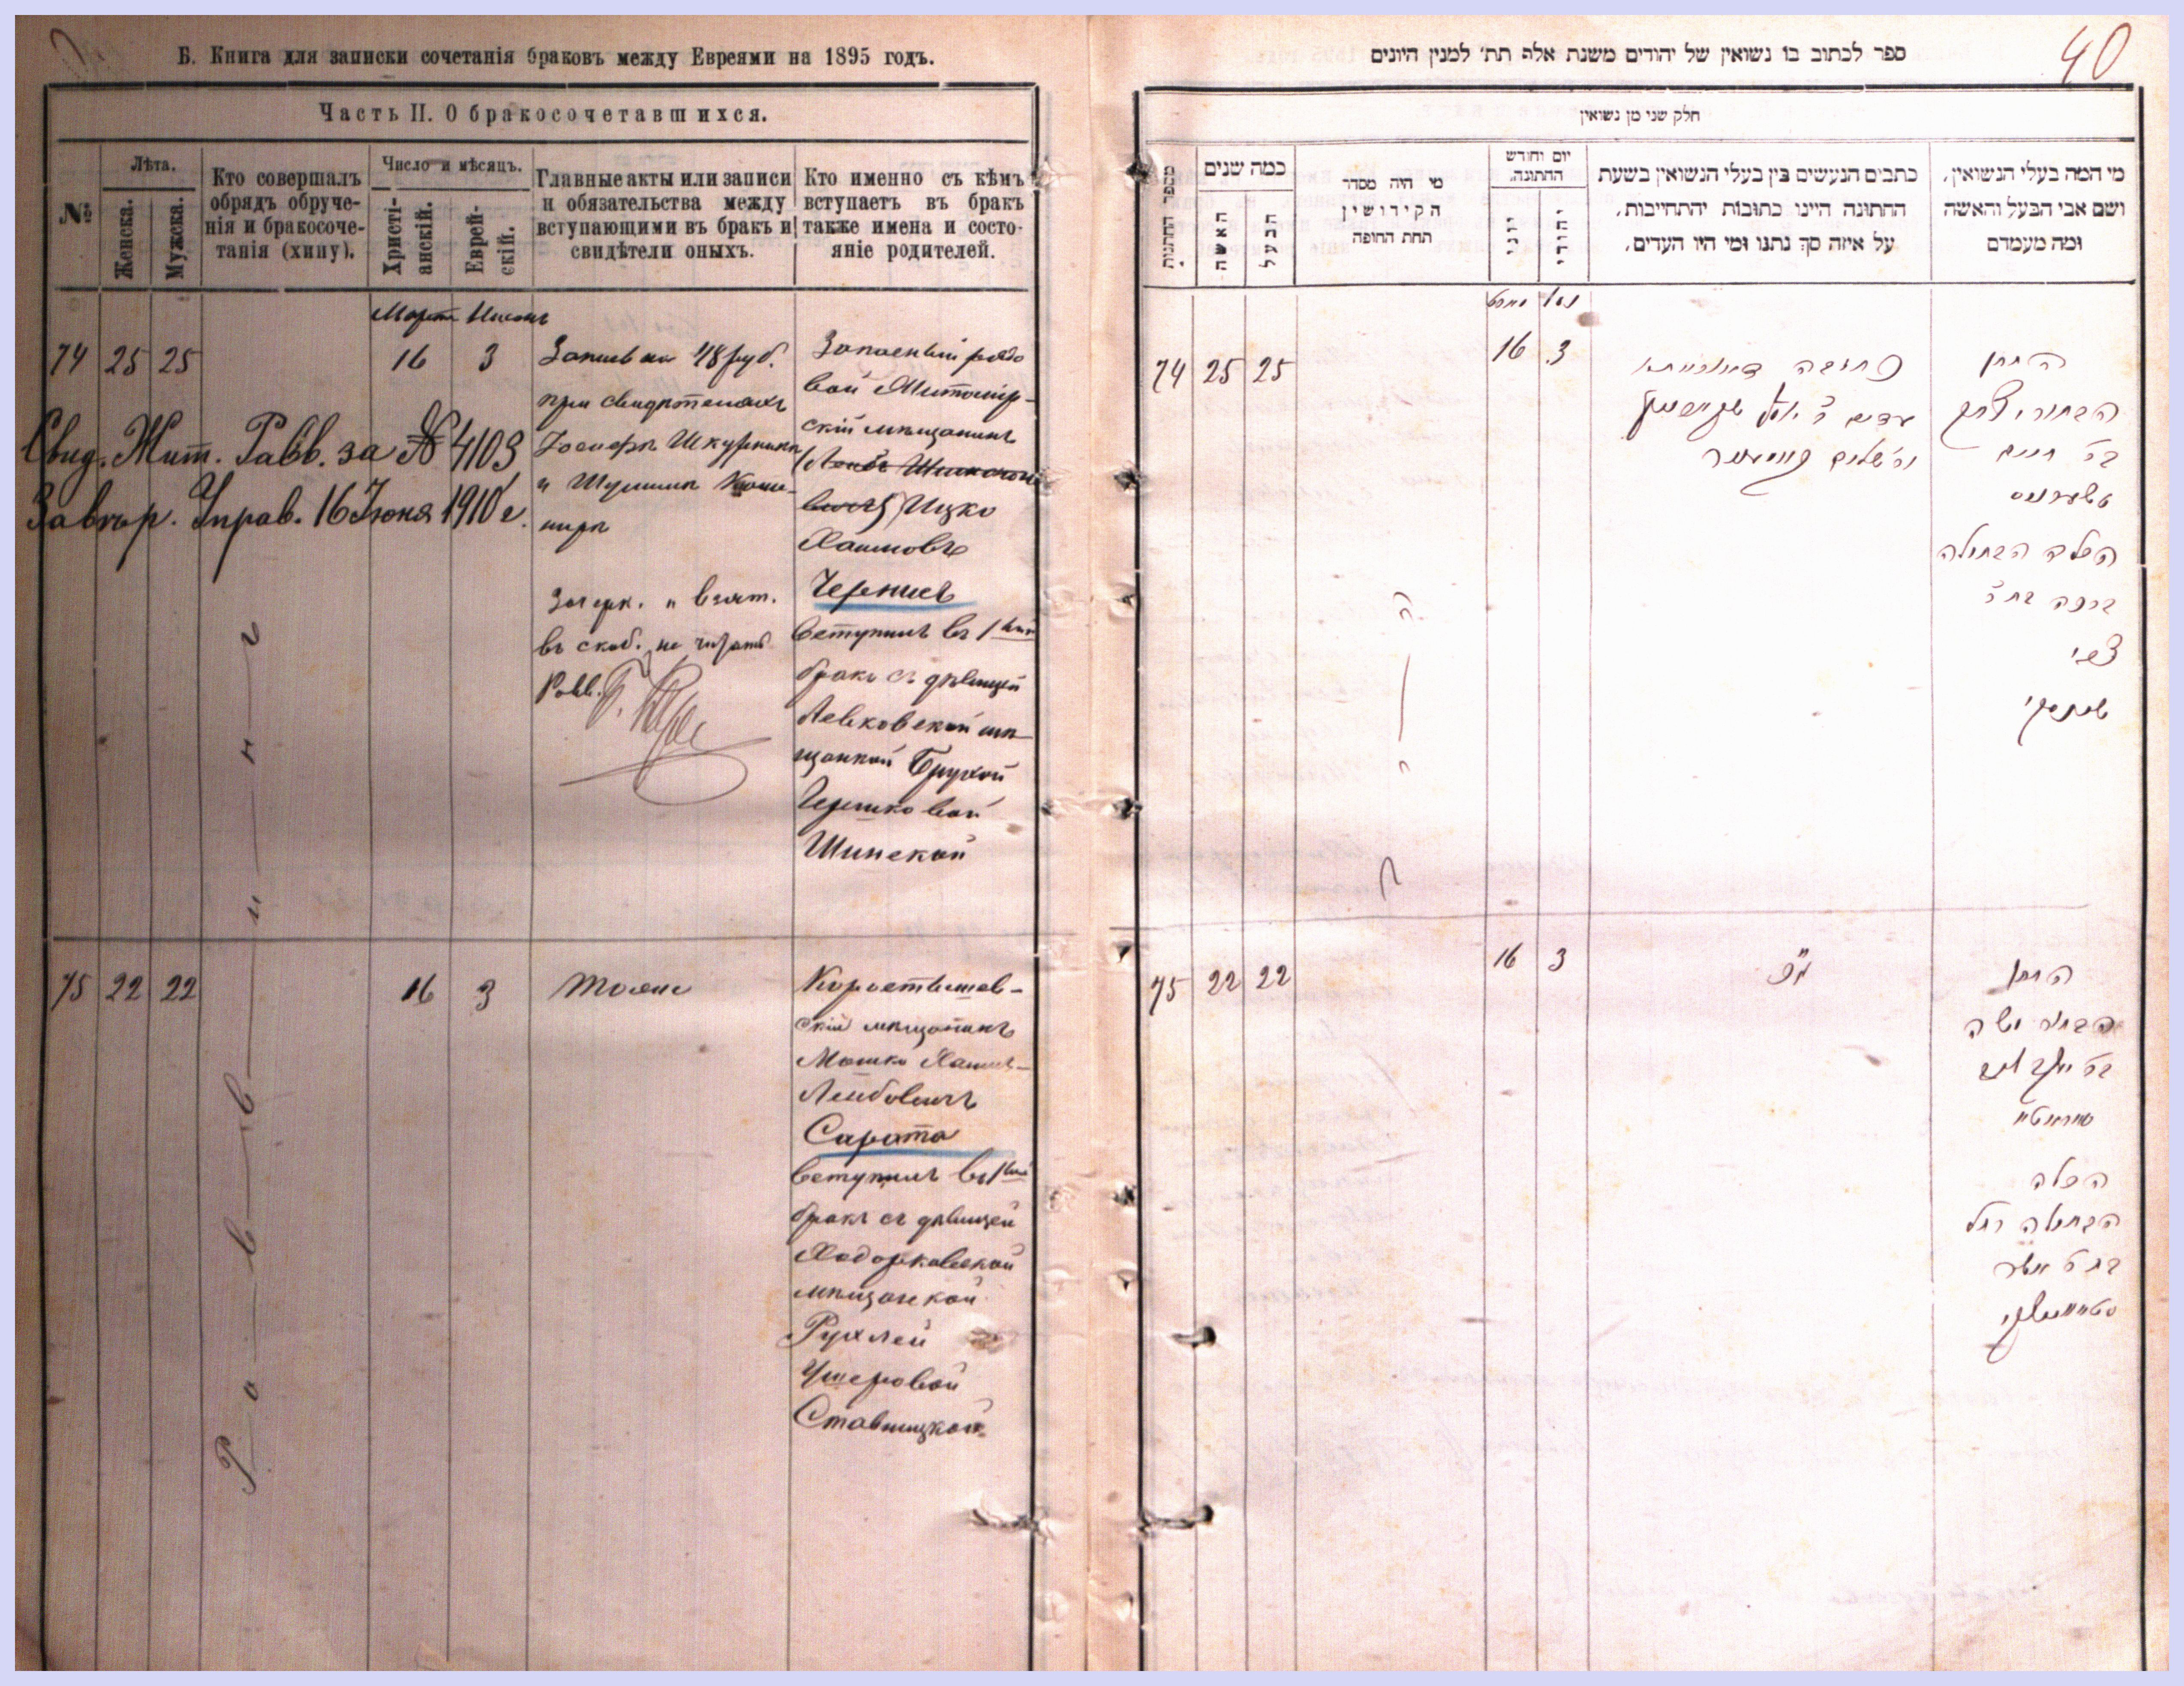 Б. Книга для записки сочетанія браковъ между Евреями на 1895 годъ.
Часть II. О бракосочетавшихся.
№
Лѣта.
Женска.
Мужска.
Кто совершалъ
обрядъ обруче-
нія и бракосоче-
танія (хипу).
Число и мѣсяцъ.
Христі-
анскій.
Еврей-
скій.
Главные акты или записи
и обязательства между
вступающими въ бракъ и
свидѣтели оныхъ.
Кто именно съ кѣмъ
вступаетъ въ бракъ
также имена и состо-
яніе родителей.
Мартъ Нисонъ
74 25 25
16 3
Запись на 48 руб.
при свидѣтеляхъ
Іосифъ Шкурникъ
и Шулимъ
Зачерк. и взят.
въ скоб. не читать
Рабв.
Запасный рядо
вой Житомир-
скій мѣщанинъ
Ицко
Хаимовъ
Черписъ
вступилъ въ 1ый
бракъ съ дѣвицей
Левковской мѣ-
щанкой Брухой
Гершковой
Шинской
Свид. Жит. Равв. за № 4103
Завѣр. Управ. 16 Іюня 1910 г.
Раввинъ
75 22 22
16 3
Тоже
Коростышев-
скій мѣщанинъ
Мошко Хаимъ-
Лейбовичъ
Сарата
вступилъ въ 1ый
бракъ съ дѣвицей
Ходорковской
мѣщанкой
Рухлей
Ушеровой
Ставницкой
ספר לכתוב בו נשואין של יהודים משנת אלף תת׳ למנין היונים
40
חלק שני מן נשואין
מספר החתונות
כמה שנים
האשה
הבעל
מי היה מסדר
הקידושין
תחת החופה
יום וחודש
החתונה
יוני
יהודי
כתבים הנעשים בין בעלי הנשואין בשעת
החתונה היינו כתובות יהתחייבות,
על איזה סך נתנו ומי היו העדים,
מי המה בעלי הנשואין,
ושם אבי הבעל והאשה
ומה מעמדם
מארט ניסן
74 25 25
16 3
כתובה דאורייתא
החתן
הבחור יצחק
בר חיים
הכלה הבתולה
ברכה בת ר׳
צבי
75 22 22
16 3
החתן
הבחור משה
הכלה
הבתולה רחל
בת ר׳ אשר